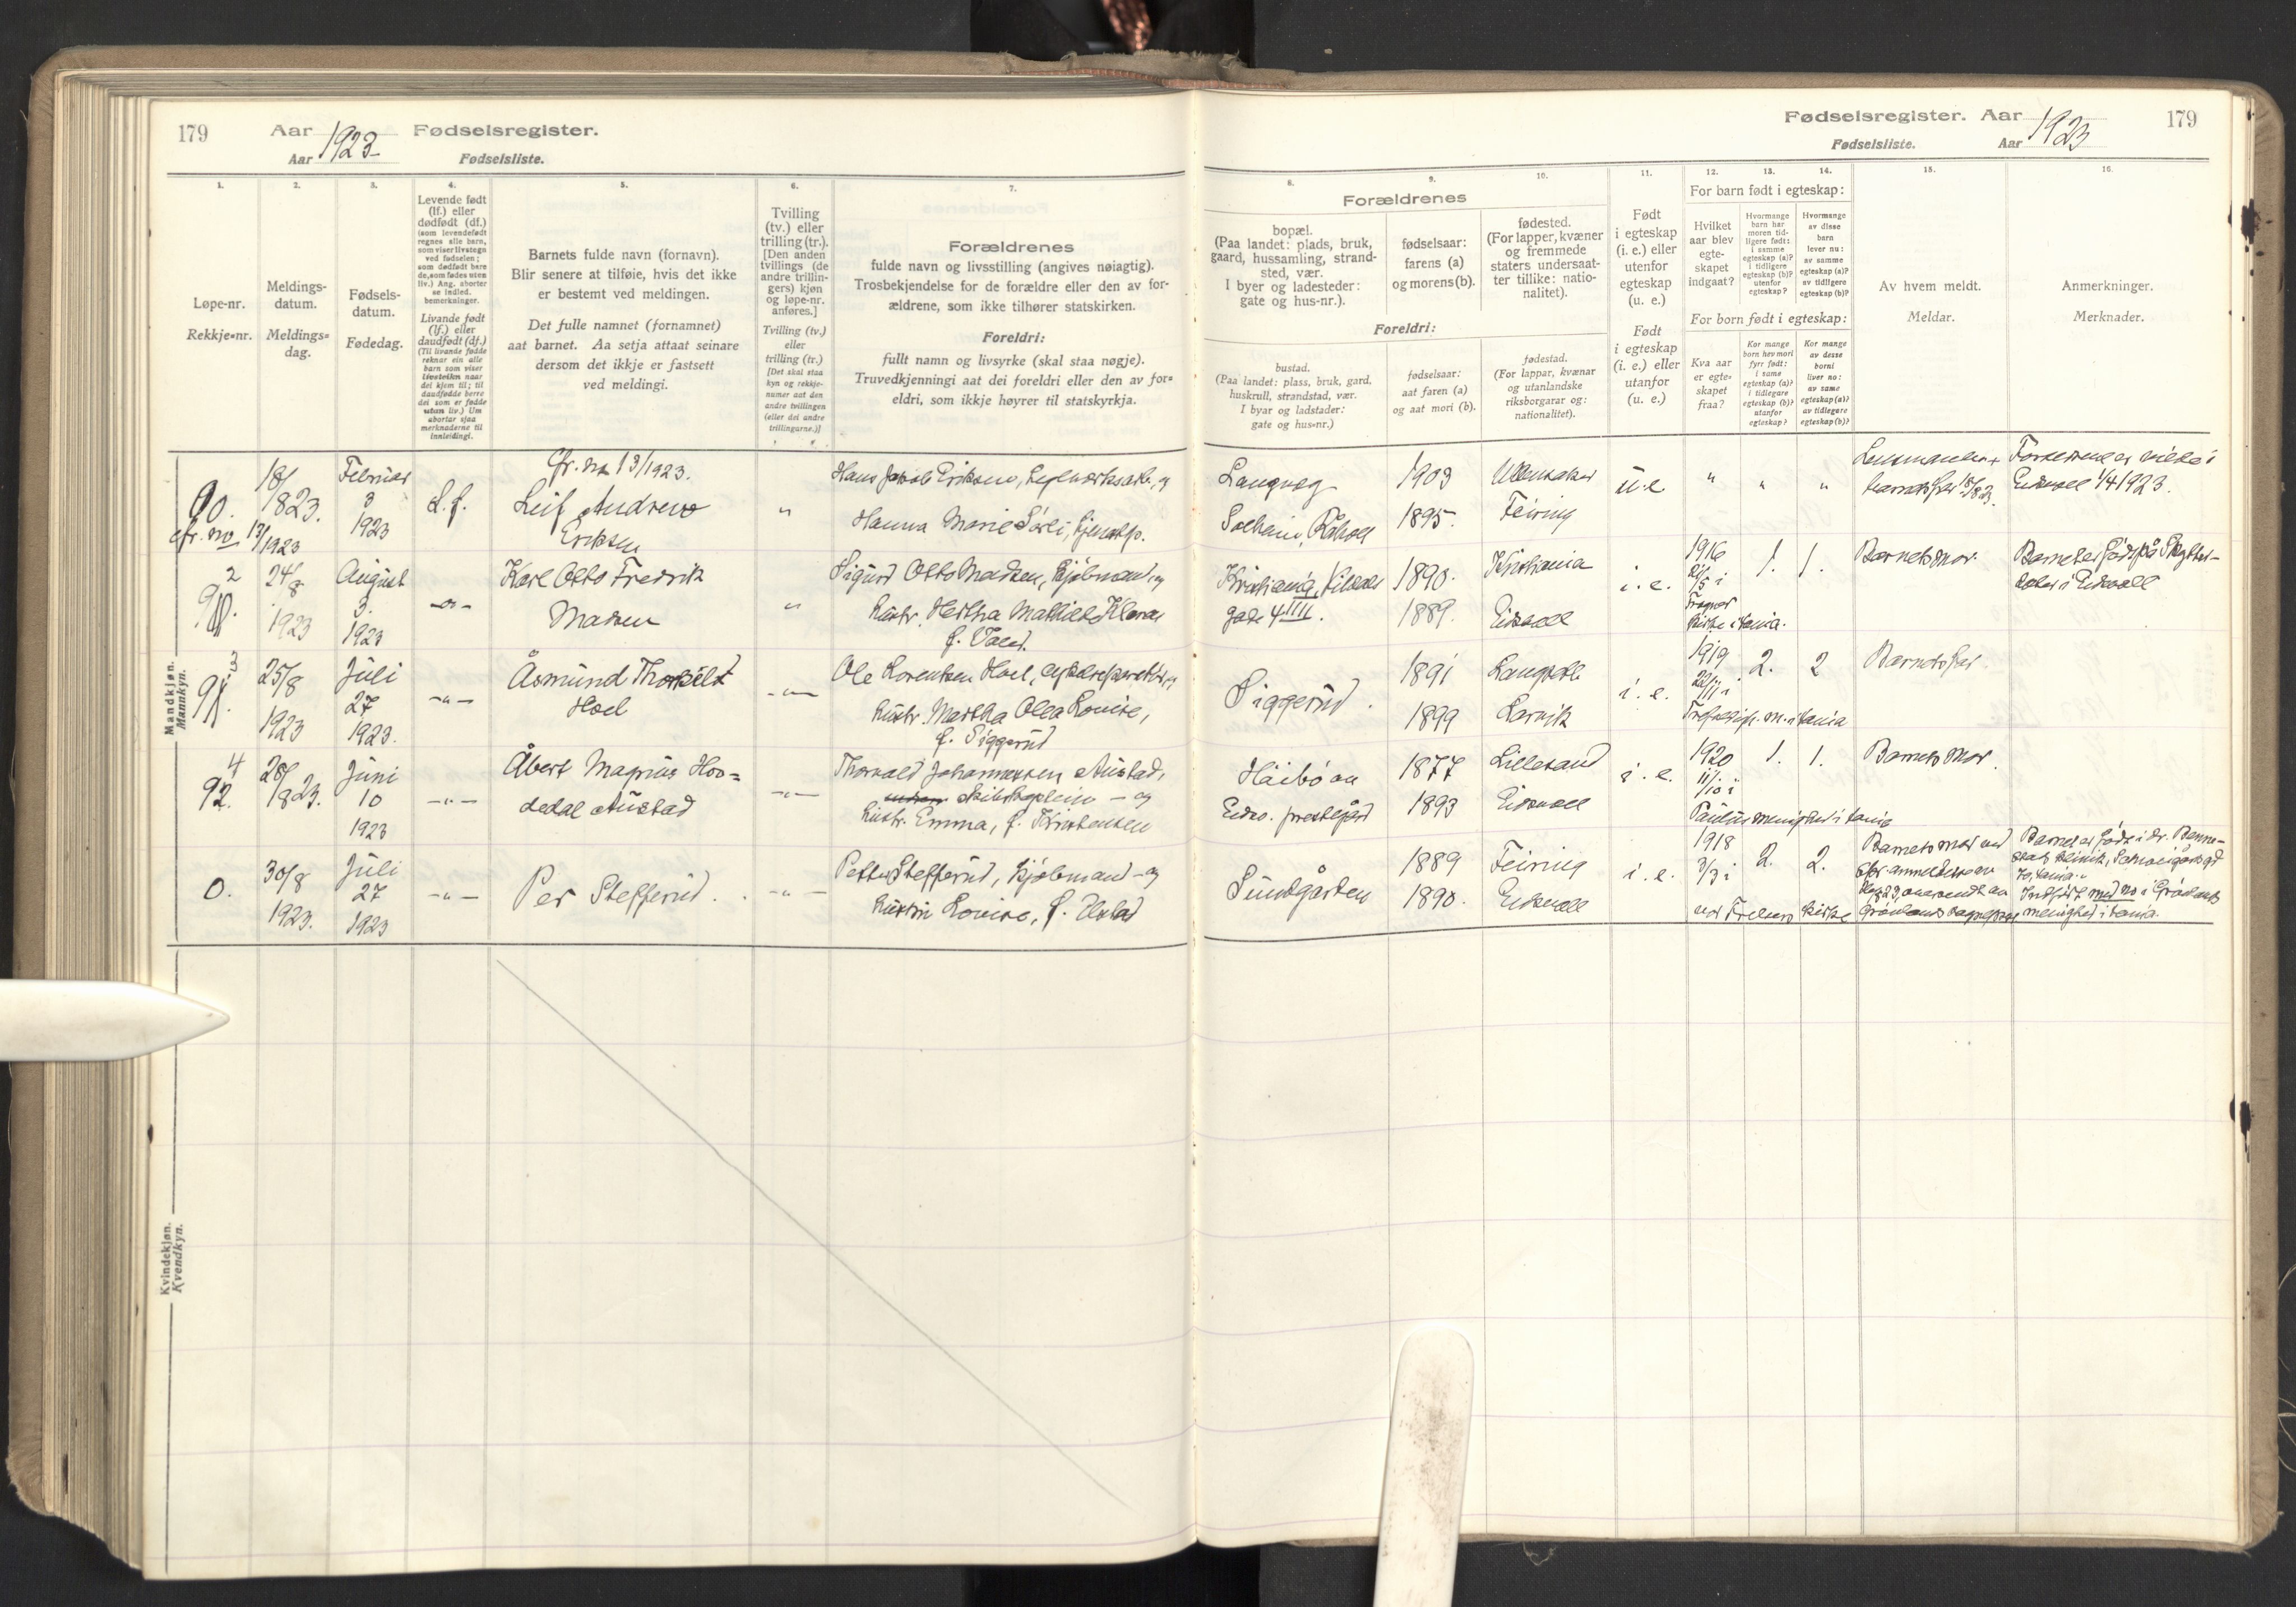 179 Aar 1923 Fødselsregister.
Aar Fødselsliste.
1. 2. 3. 4. 5. 6. 7.
Løpe-nr.
Rekkje=nr.
Meldings-
datum.
Meldings=
dag.
Fødsels-
datum.
Fødedag.
Levende født
(lf.) eller
dødfødt (df.)
(som levendefødt
regnes alle barn,
som viser livstegn
ved fødselen;
som dødfødt bare
de, som fødes uten
liv.) Ang. aborter
se indled.
bemerkninger.
Livande født
(lf.) eller
daudfødt (df.)
(Til livande fødde
reknar ein alle
barn som viser
livsteikn naar
dei kjem til; til
daudfødde berre
dei som er fødde
utan liv.) Um
abortar sjaa
merknaderne til
innleidingi.
Barnets fulde navn (fornavn).
Blir senere at tilføie, hvis det ikke
er bestemt ved meldingen.
Det fulle namnet (fornamnet)
aat barnet. Aa setja attaat seinare
dersom det ikkje er fastsett
ved meldingi.
Tvilling
(tv.) eller
trilling (tr.).
[Den anden
tvillings (de
andre trillin-
gers) kjøn
og løpe-nr.
anføres.]
Tvilling (tv.)
eller
trilling (tr.)
[Det skal staa
kyn og rekkje-
numer aat den
andre tvillingen
(eller dei andre
trillingarne.)]
Forældrenes
fulde navn og livsstilling (angives nøiagtig).
Trosbekjendelse for de forældre eller den av for-
ældrene, som ikke tilhører statskirken.
Foreldri:
fullt namn og livsyrke (skal staa nøgje).
Truvedkjenningi aat dei foreldri eller den av for=
eldri, som ikkje høyrer til statskyrkja.
Mandkjøn.
Mannkyn.
90.
cfr. no 13/1923
18/
823.
Februar
3
1923
L.f.
Cfr. no 13/1923.
Leif Andreas
Eriksen
"
Hans Jakob Eriksen, og
Hanna Marie
2
24/8
1923
August
3.
1923
Karl Otto Fredrik
Madsen
"
Sigurd Otto Madsen, Kjøbmand, og
hustr. Hertha Mathilde Klara
3
25/8
1923
Juli
27
1923.
-"-
Åsmund Thorkild
Hoel
-"-
Ole Lorentzen Hoel, og
hustr. Martha Olea Lovise,
f. Siggerud
4
92.
28/
823.
Juni
10
1923
-"-
Åbert Magnus Hov=
dedal Austad
-"-
Thorvald Johannessen Austad,
skibskaptein - og
hustr. Emma, f. Kristensen
0.
30/8
1923.
Juli
27
1923
-"-
Per Stefferud.
-"-
Petter Stefferud, Kjøbmand - og
hustru Lovise, f.
Kvindekjøn.
Kvendkyn.
Fødselsregister. Aar 1923 179
Fødselsliste. Aar
8. 9. 10. 11. 12. 13. 14. 15. 16.
Forældrenes
bopæl.
(Paa landet: plads, bruk,
gaard, hussamling, strand-
sted, vær.
I byer og ladesteder:
gate og hus-nr.).
fødselsaar:
farens (a)
og morens (b).
fødested.
(For lapper, kvæner
og fremmede
staters undersaat-
ter tillike: natio-
nalitet).
Foreldri:
bustad.
(Paa landet: plass, bruk, gard,
huskrull, strandstad, vær.
I byar og ladstader:
gate og hus=nr.)
fødselsaar:
aat faren (a)
og aat mori (b).
fødestad.
(For lappar, kvænar
og utanlandske
riksborgarar og:
nationalitet).
Født
i egteskap
(i. e.) eller
utenfor
egteskap
(u. e.)
Født
i egteskap
(i. e.) eller
utanfor
egteskap
(u. e.)
For barn født i egteskap:
Hvilket
aar blev
egte-
skapet
indgaat?
Hvormange
barn har
moren tid-
ligere født:
i samme
egteskap (a)?
i tidligere
egteskap (b)?
utenfor
egteskap?
Hvormange
av disse
barn
lever nu:
av samme
egteskap (a)?
av tidligere
egteskap (b)?
For born født i egteskap:
Kva aar
er egte=
skapet
fraa?
Kor mange
born hev mori
fyrr født:
i same
egteskap (a)?
i tidlegare
egteskap (b)?
utanfor
egteskap?
Kor mange
av desse
borni
liver no:
av same
egteskap (a)?
av tidlegare
egteskap (b)?
Av hvem meldt.
Meldar.
Anmerkninger.
Merknader.
Langvag
Solheim, Råholt
1903
1895.
Ullensaker
Feiring
u.e
" " "
Lensmanden +
barnets far 18/8 23.
Forældrene er viede i
Eidsvoll 1/4 1923.
Kristiania,
gate 4 IIII.
1890.
1889.
Kristiania
Eidsvoll
i. e.
1916
21/5 i
Frogner
kirke i tania.
1. 1.
Barnets mor.
Barnet er født på
i Eidsvoll
Siggerud.
1891
1899
Langseth
Larvik
i. e.
1919
22/11 i
2. 2
Barnets far.
Eidsv. prestegård
1877
1893
Lillesand
Eidsvoll
i. e.
1920
11/10 i
Paulus menighed i tania
1. 1.
Barnets mor.
Sundgården
1889
1890.
Feiring
Eidsvoll
i. e.
1918
3/3 i
kirke
2. 2.
Barnets mor
Barnet er født i dr.
menighed i tania.